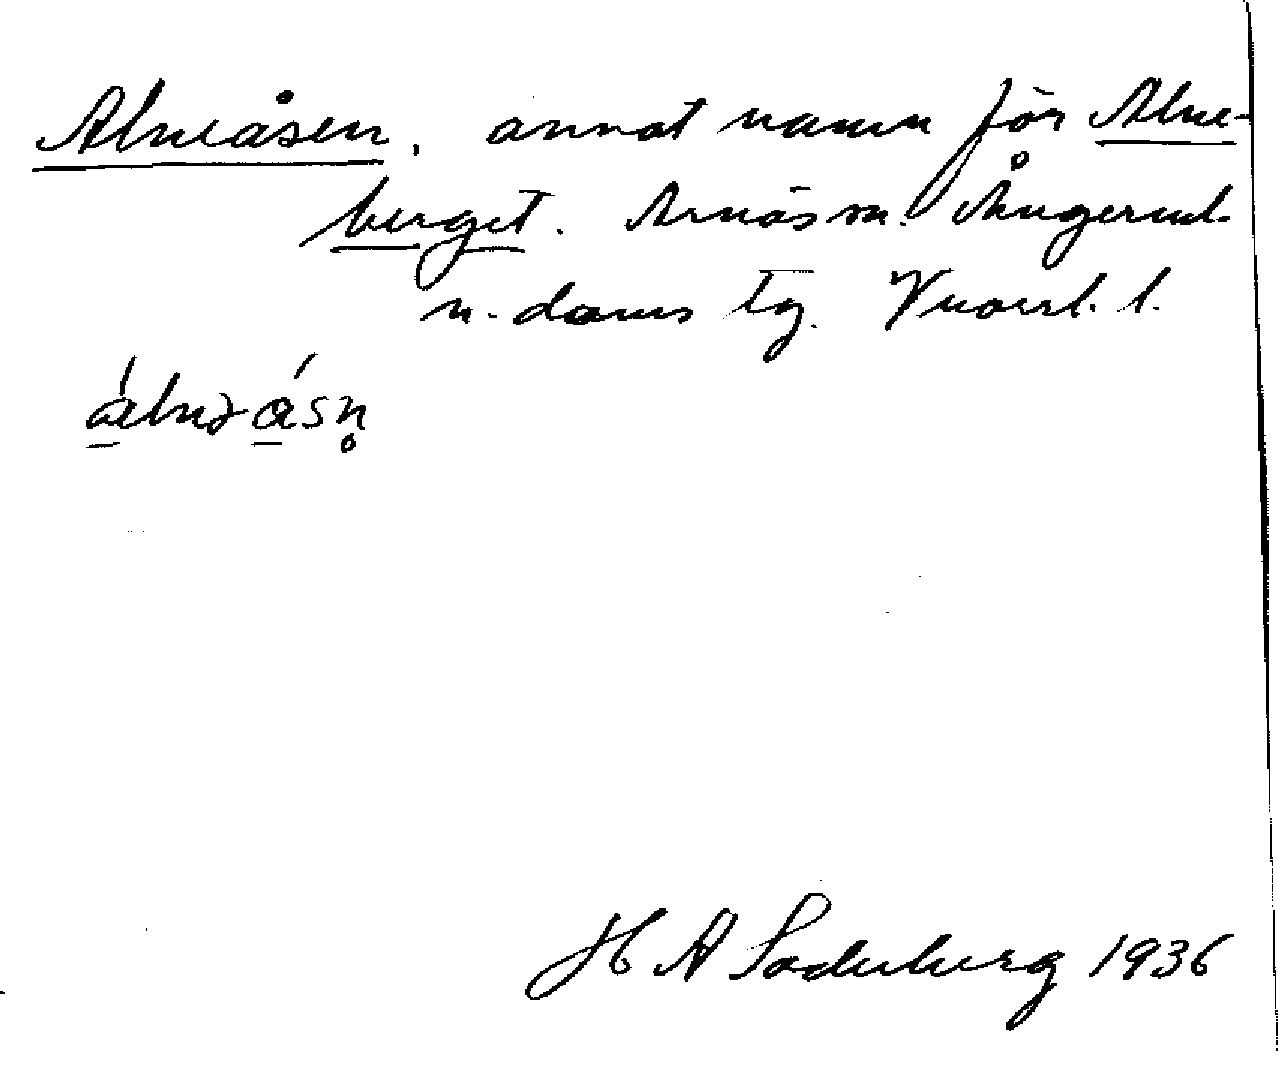 Alneåsen, annat namn för Alne-
berget. Arnäs sn. Ångerml.
n. doms tg. Vnorrl. l.
álnəásn̥
H A Söderberg 1936